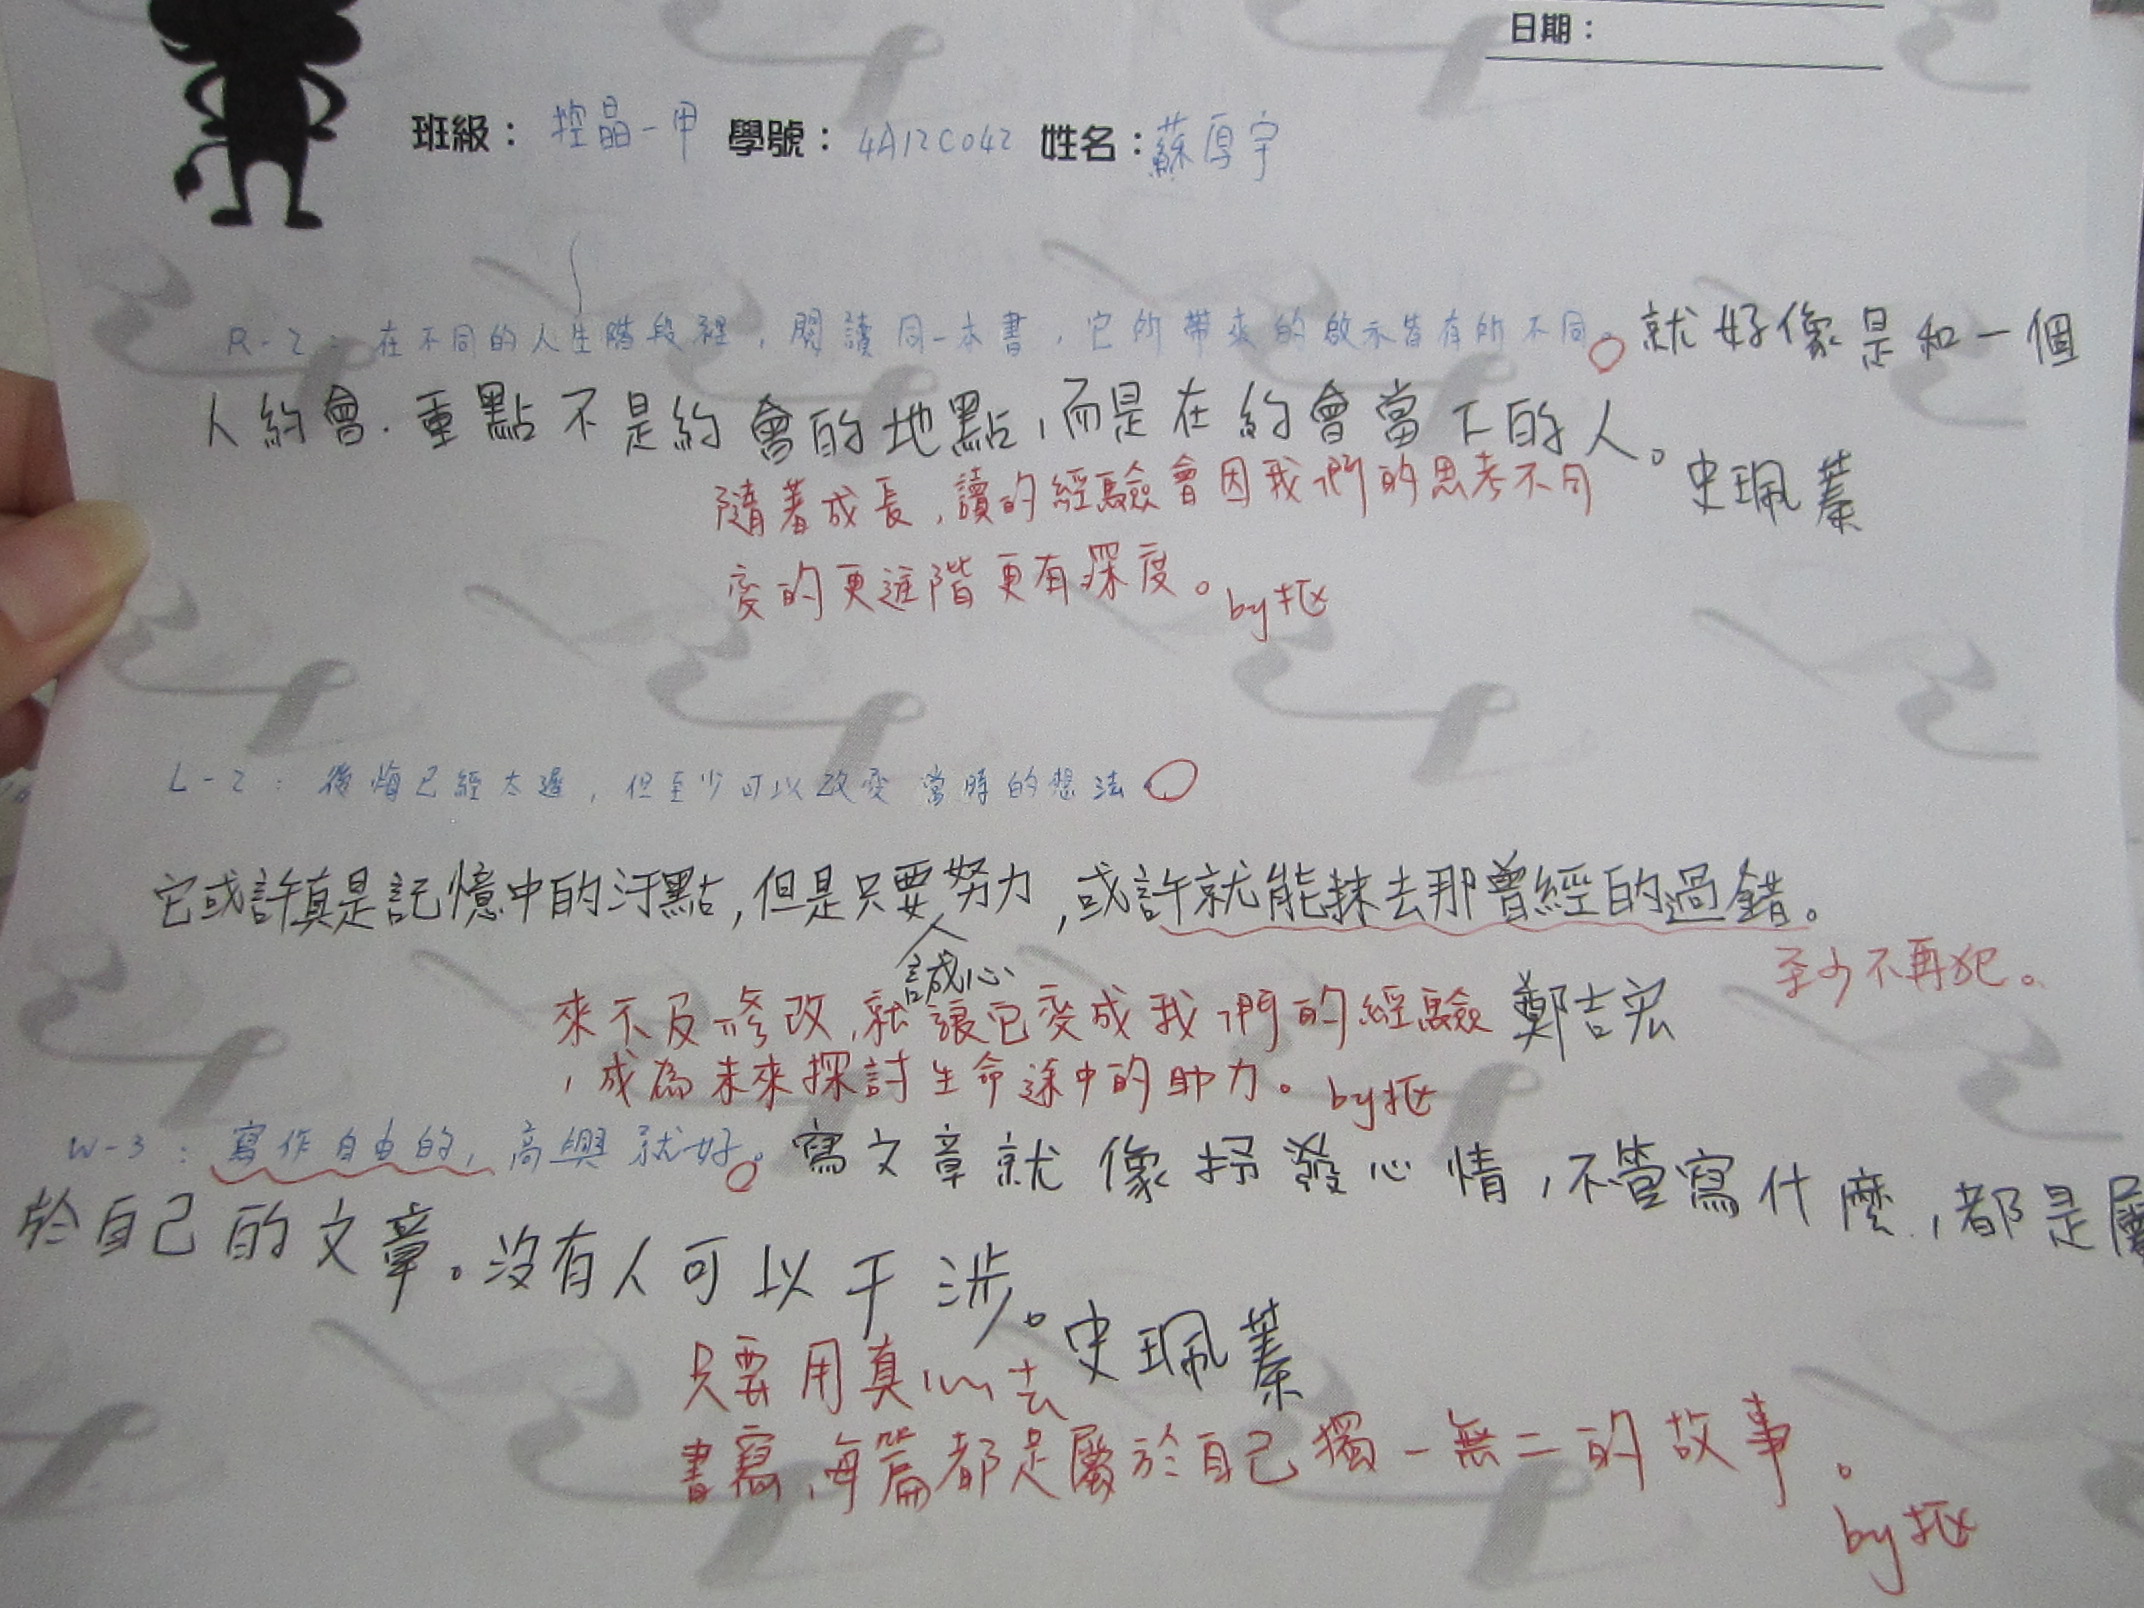 日期：
班級：控晶一甲 學號：4A12C042 姓名：蘇厚宇
R-2：在不同的人生階段裡，閱讀同一本書，它所帶來的啟示皆有所不同。就好像是和一個
人約會．重點不是約會的地點，而是在約會當下的人。
史珮蓁
隨著成長，讀的經驗會因我們的思考不同
變的更進階更有深度。by抠
L-2：後悔已經太遲，但至少可以改變當時的想法
它或許真是記憶中的汙點，但是只要努力，或許就能抹去那曾經的過錯。
誠心
至少不再犯。
來不及修改，就讓它變成我們的經驗 鄭吉宏
，成為未來探討生命途中的助力。by抠
W-3：寫作自由的，高興就好。寫文章就像抒發心情，不管寫什麼，都是屬
於自己的文章。沒有人可以干涉。
史珮蓁
只要用真心去
書寫，每篇都是屬於自己獨一無二的故事。
by抠